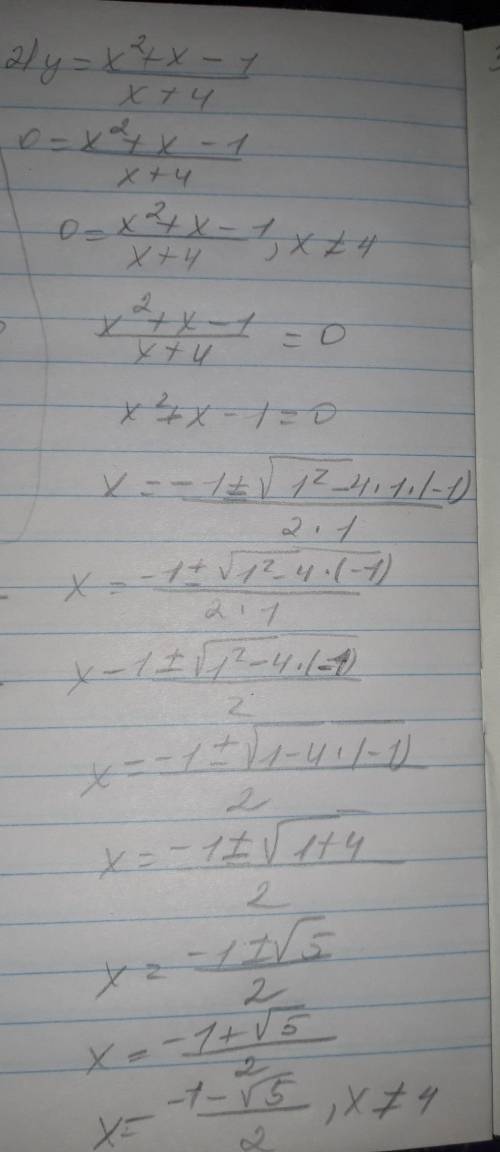 2) y = (x² + x - 1)/(x + 4)
0 = (x² + x - 1)/(x + 4)
0 = (x² + x - 1)/(x + 4), x ≠ 4
(x² + x - 1)/(x + 4) = 0
x² + x - 1 = 0
x = (-1 ± √(1² - 4 · 1 · (-1)))/(2 · 1)
x = (-1 ± √(1² - 4 · (-1)))/(2 · 1)
x (-1 ± √(1² - 4 · (-1)))/2
x = (-1 ± √(1 - 4 · (-1)))/2
x = (-1 ± √(1 + 4))/2
x = (-1 ± √5)/2
x = (-1 + √5)/2
x = (-1 - √5)/2, x ≠ 4